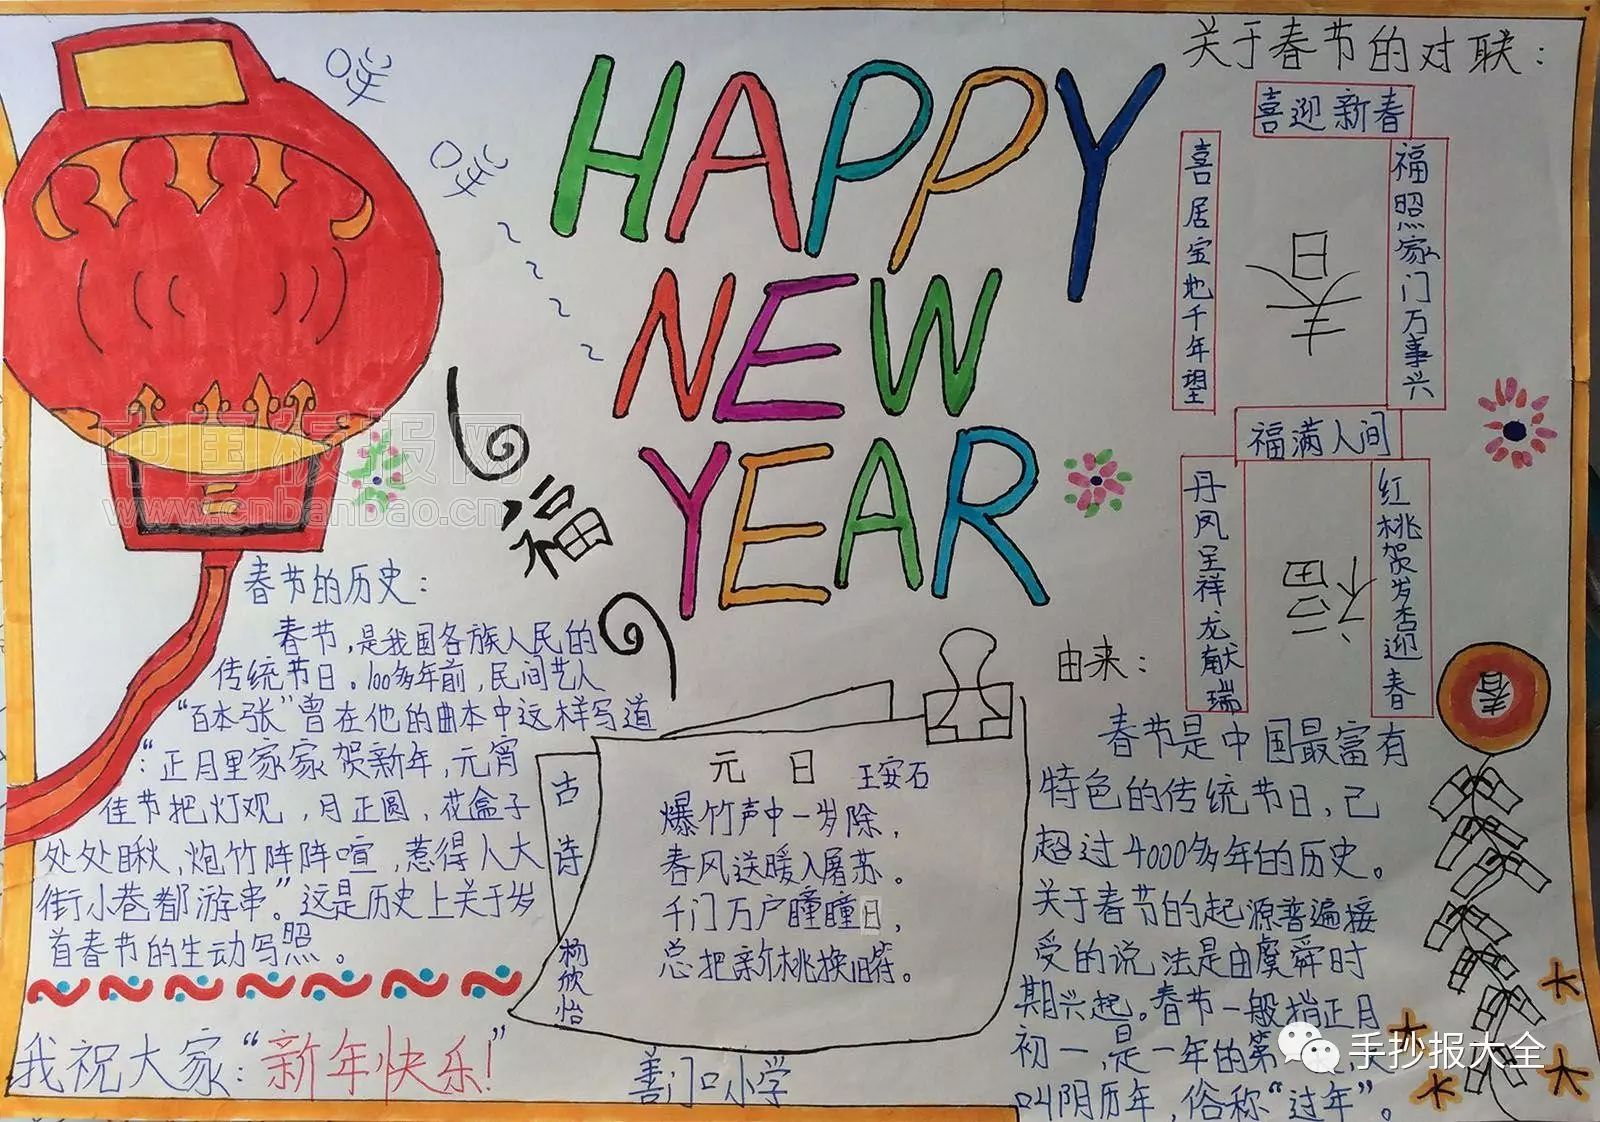 HAPPY
NEW
YEAR
关于春节的对联：
喜迎新春
喜居宝地千年望
福照家门万事兴
春
福满人间
丹凤呈祥龙献瑞
红桃贺岁杏迎春
福
福
春
春节的历史：
春节，是我国各族人民的
传统节日。100多年前，民间艺人
“百本张”曾在他的曲本中这样写道
：“正月里家家贺新年，元宵
佳节把灯观，月正圆，花盒子
处处瞅，炮竹阵阵喧，惹得人大
街小巷都游串。”这是历史上关于岁
首春节的生动写照。
我祝大家：“新年快乐！”
古诗
杨欣怡
元日 王安石
爆竹声中一岁除，
春风送暖入屠苏。
千门万户瞳瞳日，
总把新桃换旧符。
善门口小学
由来：
春节是中国最富有
特色的传统节日，已
超过4000多年的历史。
关于春节的起源普遍接
受的说法是由虞舜时
期兴起。春节一般指正月
初一，是一年的第一天
叫阴历年，俗称“过年”。
中国板报网
www.cnbanbao.cn
手抄报大全